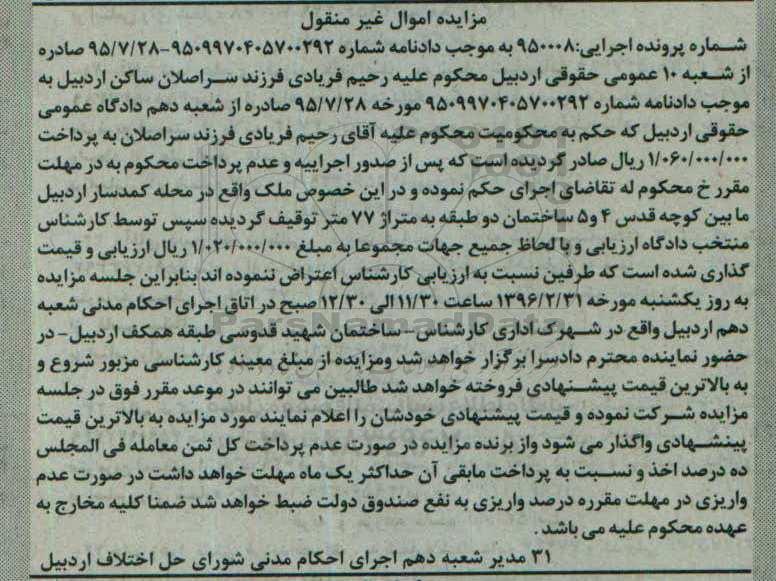 مزایده اموال غیر منقول
شماره پرونده اجرایی:۹۵۰۰۰۸ به موجب دادنامه شماره ۹۵۰۹۹۷۰۴۰۵۷۰۰۲۹۲-۹۵/۷/۲۸ صادره
از شعبه ۱۰ عمومی حقوقی اردبیل محکوم علیه رحیم فریادی فرزند سراصلان ساکن اردبیل به
موجب دادنامه شماره ۹۵۰۹۹۷۰۴۰۵۷۰۰۲۹۲ مورخه ۹۵/۷/۲۸ صادره از شعبه دهم دادگاه عمومی
حقوقی اردبیل که حکم به محکومیت محکوم علیه آقای رحیم فریادی فرزند سراصلان به پرداخت
۱/۰۶۰/۰۰۰/۰۰۰ ریال صادر گردیده است که پس از صدور اجراییه و عدم پرداخت محکوم به در مهلت
مقرر خ محکوم له تقاضای اجرای حکم نموده و در این خصوص ملک واقع در محله کمدسار اردبیل
ما بین کوچه قدس ۴ و۵ ساختمان دو طبقه به متراژ ۷۷ متر توقیف گردیده سپس توسط کارشناس
منتخب دادگاه ارزیابی و با لحاظ جمیع جهات مجموعا به مبلغ ۱/۰۲۰/۰۰۰/۰۰۰ ریال ارزیابی و قیمت
گذاری شده است که طرفین نسبت به ارزیابی کارشناس اعتراض ننموده اند بنابراین جلسه مزایده
به روز یکشنبه مورخه ۱۳۹۶/۲/۳۱ ساعت ۱۱/۳۰ الی ۱۲/۳۰ صبح در اتاق اجرای احکام مدنی شعبه
دهم اردبیل واقع در شهرک اداری کارشناس- ساختمان شهید قدوسی طبقه همکف اردبیل- در
حضور نماینده محترم دادسرا برگزار خواهد شد ومزایده از مبلغ معینه کارشناسی مزبور شروع و
به بالاترین قیمت پیشنهادی فروخته خواهد شد طالبین می توانند در موعد مقرر فوق در جلسه
مزایده شرکت نموده و قیمت پیشنهادی خودشان را اعلام نمایند مورد مزایده به بالاترین قیمت
پینشهادی واگذار می شود واز برنده مزایده در صورت عدم پرداخت کل ثمن معامله فی المجلس
ده درصد اخذ و نسبت به پرداخت مابقی آن حداکثر یک ماه مهلت خواهد داشت در صورت عدم
واریزی در مهلت مقرره درصد واریزی به نفع صندوق دولت ضبط خواهد شد ضمنا کلیه مخارج به
عهده محکوم علیه می باشد.
۳۱ مدیر شعبه دهم اجرای احکام مدنی شورای حل اختلاف اردبیل
ParsNamadData